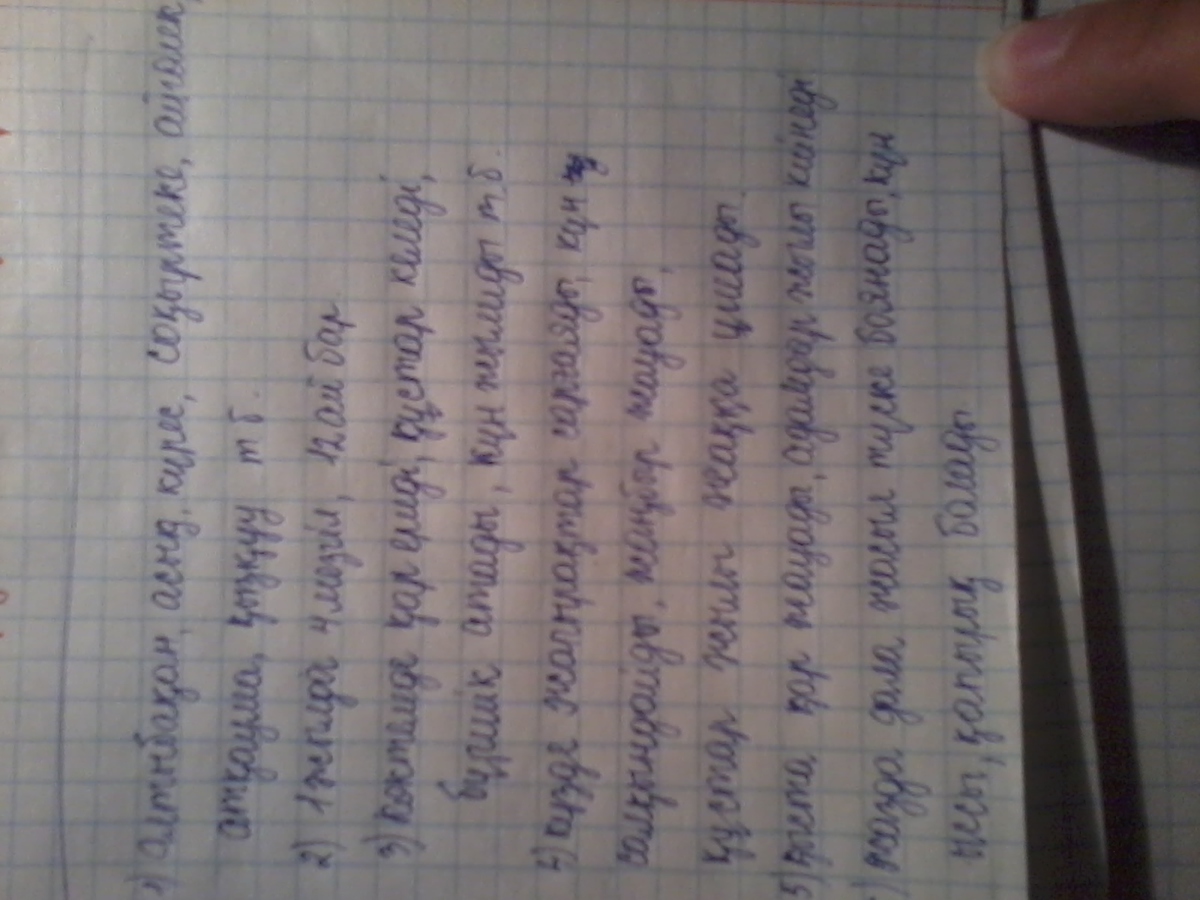 1) алтыбақан, асық, күрес, соқыртеке, айгөлек,
атқаума, қызқуу т б.
2) 1 жылда 4 мезгіл, 12 ай бар.
3) көктемде қар ериді, құстар келеді,
бүршік атады, күн жылиды т б.
4) күзде жапырақтар сарғаяды, күн
салқындайды, жаңбыр жауады,
құстар жылы жаққа ұшады.
5) қыста қар жауады, адамдар жылы киінеді
) жазда дала жасыл түске боянады, күн
ысы, қапырық болады